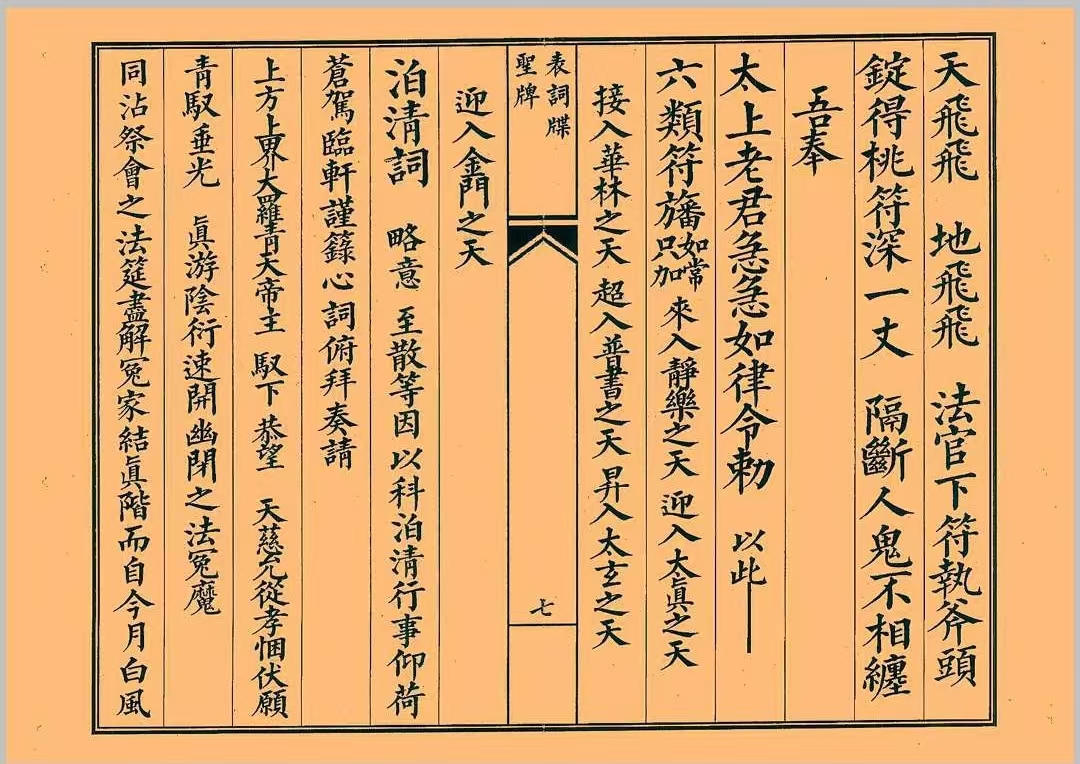 天飛飛　地飛飛　法官下符執斧頭
錠得桃符深一丈　隔斷人鬼不相纏
吾奉
太上老君急急如律令勅　以此
六類符旛如常只加　來入靜樂之天　迎入太眞之天
接入華林之天　超入普書之天　昇入太玄之天
表詞牒
聖牌
七
迎入金門之天
泊清詞　略意　至散等因　以科泊清行事仰荷
蒼駕臨軒謹籙心　詞俯拜奏請
上方上界大羅青天帝主　馭下　恭望　天慈允從孝悃伏願
青馭垂光　眞游陰衍速開幽閉之法冤魔
同沾祭會之法筵盡解冤家結眞階而自今月白風